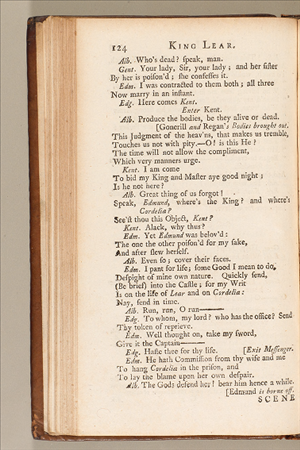 124 KING LEAR.
Alb. Who's dead? speak, man.
Gent. Your lady, Sir, your lady; and her sister
By her is poison'd; she confesses it.
Edm. I was contracted to them both; all three
Now marry in an instant.
Edg. Here comes Kent.
Enter Kent.
Alb. Produce the bodies, be they alive or dead.
[Gonerill and Regan's Bodies brought out.
This Judgment of the heav'ns, that makes us tremble,
Touches us not with pity.—O! is this He?
The time will not allow the compliment,
Which very manners urge.
Kent. I am come
To bid my King and Master aye good night;
Is he not here?
Alb. Great thing of us forgot!
Speak, Edmund, where's the King? and where's
Cordelia?
See'st thou this Object, Kent?
Kent. Alack, why thus?
Edm. Yet Edmund was belov'd:
The one the other poison'd for my sake,
And after slew herself.
Alb. Even so; cover their faces.
Edm. I pant for life; some Good I mean to do,
Despight of mine own nature. Quickly send,
(Be brief) into the Castle; for my Writ
Is on the life of Lear and on Cordelia:
Nay, send in time.
Alb. Run, run, O run——
Edg. To whom, my lord? who has the office? Send
Thy token of reprieve.
Edm. Well thought on, take my sword,
Give it the Captain——
Edg. Haste thee for thy life. [Exit Messenger.
Edm. He hath Commission from thy wife and me
To hang Cordelia in the prison, and
To lay the blame upon her own despair.
Alb. The Gods defend her! bear him hence a while.
[Edmund is borne off.
SCENE